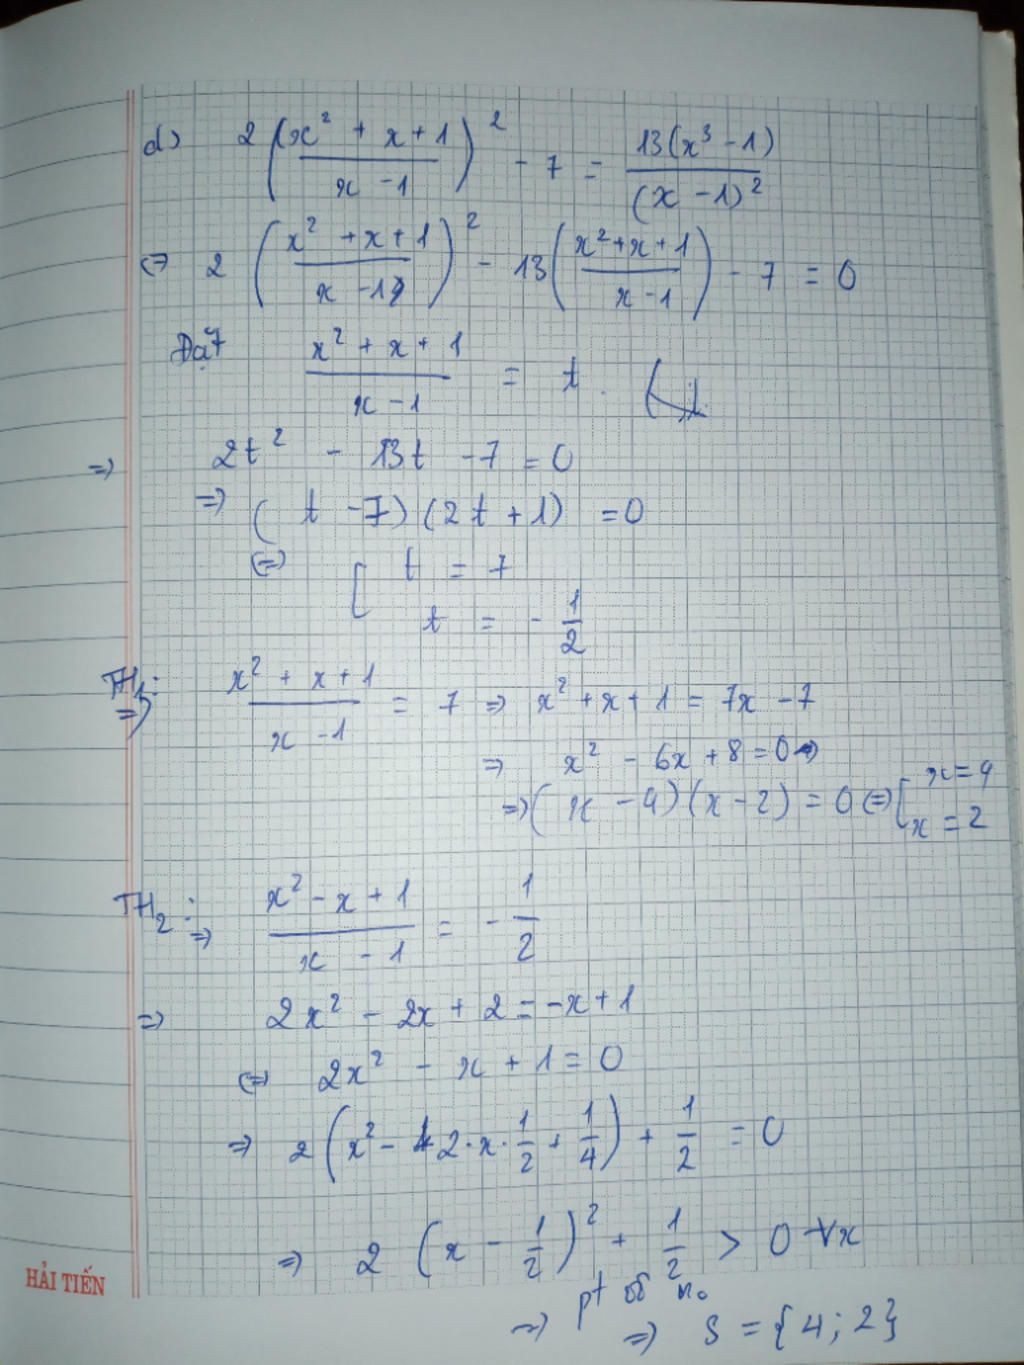 d) 2 ( (x² + x + 1) / (x - 1) )² - 7 = 13(x³ - 1) / (x - 1)²
<=> 2 ( (x² + x + 1) / (x - 1) )² - 13 ( (x² + x + 1) / (x - 1) ) - 7 = 0
Đặt (x² + x + 1) / (x - 1) = t.
=> 2t² - 13t - 7 = 0
=> ( t - 7) (2t + 1) = 0
<=> [ t = 7
t = - 1/2
TH1: => (x² + x + 1) / (x - 1) = 7 => x² + x + 1 = 7x - 7
=> x² - 6x + 8 = 0 =>
=> ( x - 4) (x - 2) = 0 <=> [ x = 4
x = 2
TH2: => (x² - x + 1) / (x - 1) = - 1/2
=> 2x² - 2x + 2 = -x + 1
<=> 2x² - x + 1 = 0
=> 2 ( x² - 2 · x · 1/2 + 1/4 ) + 1/2 = 0
=> 2 ( x - 1/2 )² + 1/2 > 0 ∀x
=> pt vô no
=> S = {4; 2}
HẢI TIẾN